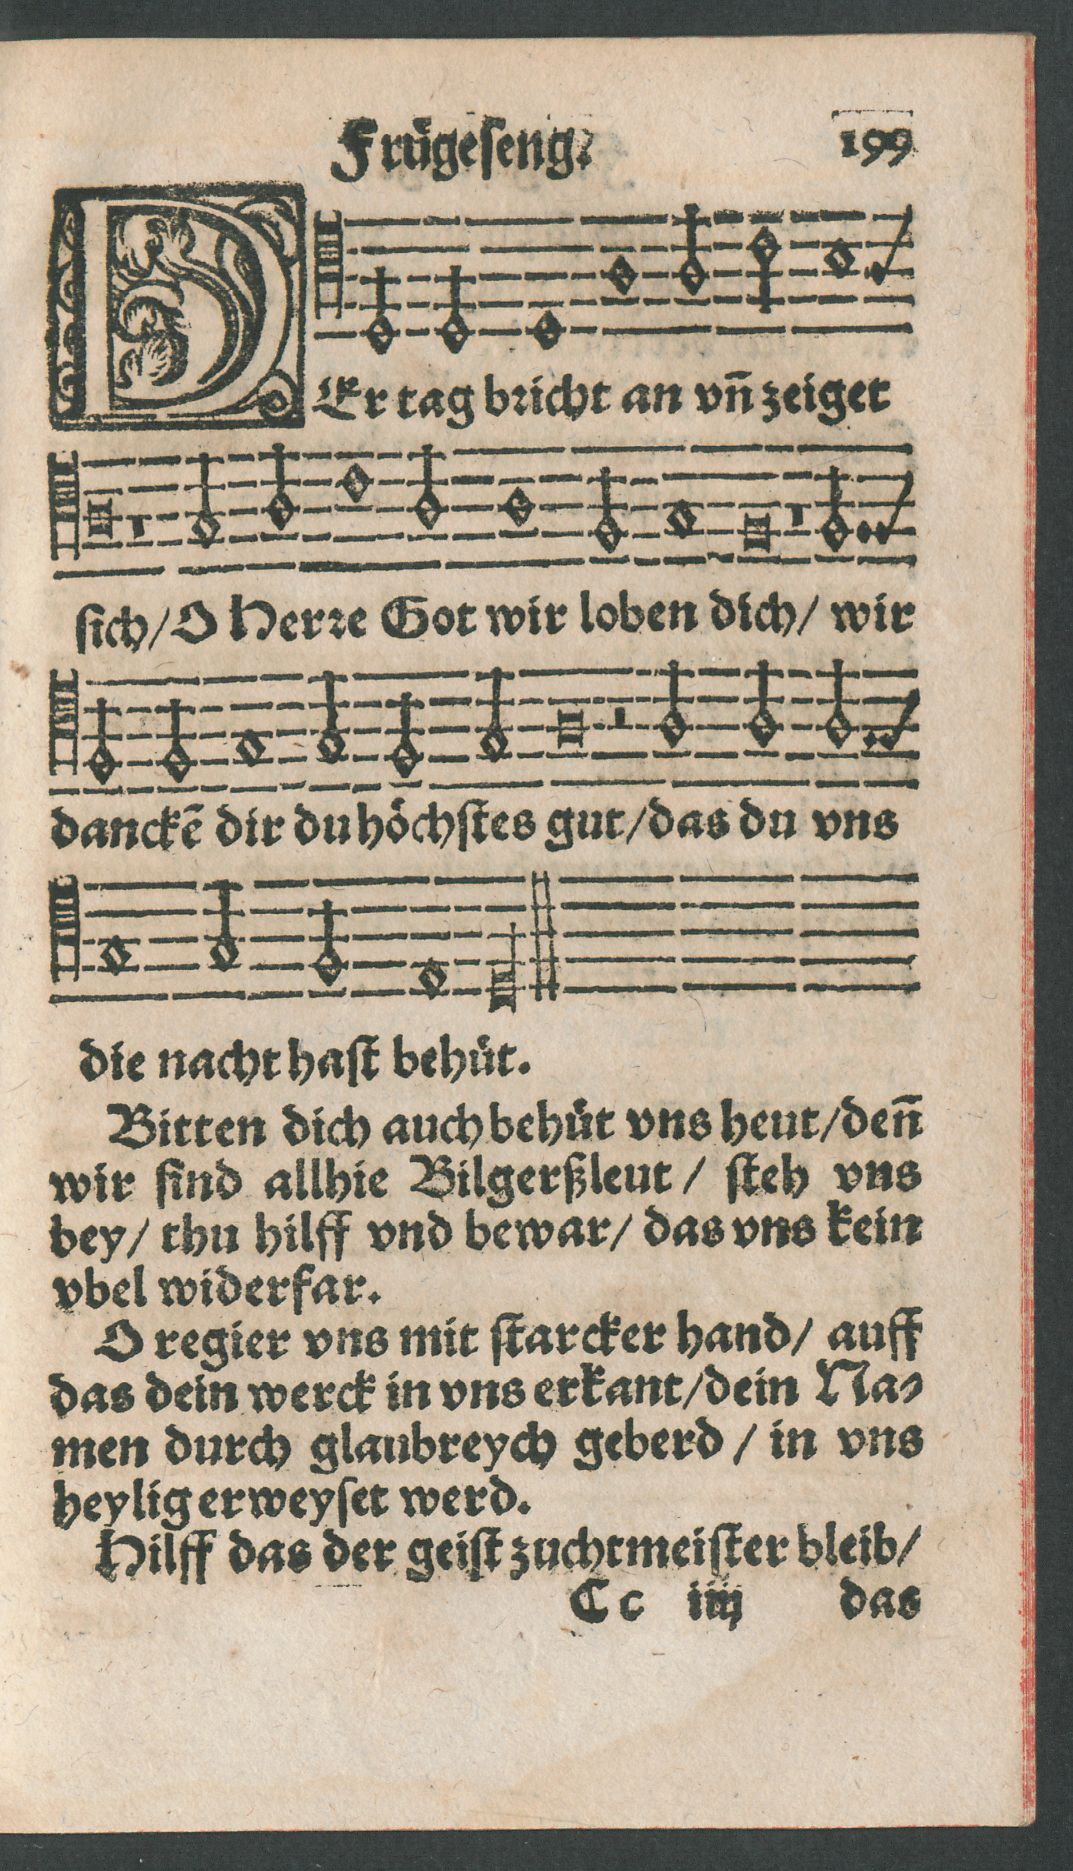 Frůgeseng.
199
DEr tag bricht an vn̄ zeiget
sich/ O Herre Got wir loben dich/ wir
danckē dir du höchstes gut/ das du vns
die nacht hast behüt.
Bitten dich auch behüt vns heut/ den̄
wir sind allhie Bilgerßleut/ steh vns
bey/ thu hilff vnd bewar/ das vns kein
vbel widerfar.
O regier vns mit starcker hand/ auff
das dein werck in vns erkant/ dein Na-
men durch glaubreych geberd/ in vns
heylig erweyset werd.
Hilff das der geist zuchtmeister bleib/
Cc iiij das